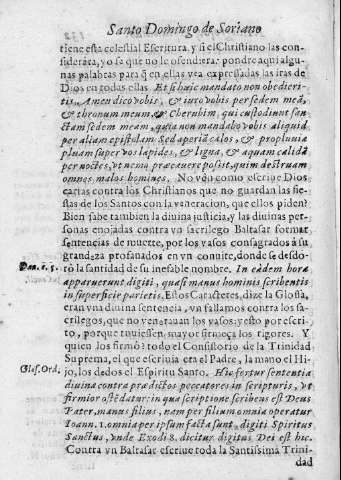 Santo Domingo de Soriano
tiene esta celestial Escritura, y si el Christiano las con-
siderára, yo sa que no le ofendiera: pondre aqui algu-
nas palabras para q̃ en ellas vea expressadas las iras de
Dios en todas ellas. Et si huic mandato non obedieri-
tis, Amen dico vobis, & iuro vobis per sedem meã,
& thronum meum, & Cherubim, qui custodiunt san-
ctam sedem meam, quia non mandabo vobis aliquid
per aliam epistolam. Sed aperiã cælos, & pro pluuia
pluam super vos lapides, & ligna, & aquam calidã
per noctes, vt nemo præcauere possit, quin destruam
omnes malos homines. No veis como escriue Dios
cartas contra los Christianos que no guardan las fie-
stas de los Santos con la veneracion, que ellos piden?
Bien sabe tambien la diuina justicia, y las diuinas per-
sonas enojadas contra vn sacrilego Baltasar formar
sentencias de muerte, por los vasos consagrados à su
grandeza profanados en vn conuite, donde se desdo-
Dan. c. 5. rò la santidad de su inefable nombre. In eàdem hora
apparuerunt digiti, quasi manus hominis scribentis
in superficie parietis. Estos Caracteres, dize la Glosa,
eran vna diuina sentencia, vn fallamos contra los sa-
crilegos, que no venerauan los vasos: y esto por escri-
to, porque tuuiessen mayor firmeza los rigores. Y
quien los firmò? todo el Consistorio de la Trinidad
Suprema, el que escriuia era el Padre, la mano el Hi-
Glos. Ord. jo, los dedos el Espiritu Santo. Hic fertur sententia
diuina contra prædictos peccatores in scripturis, vt
firmior ostẽdatur: in qua scriptione scribens est Deus
Pater, manus filius, nam per filium omnia operatur
Ioann. 1. omnia per ipsum facta sunt, digiti Spiritus
Sanctus, vnde Exodi 8. dicitur digitus Dei est hic.
Contra vn Baltasar escriue toda la Santissima Trini-
dad